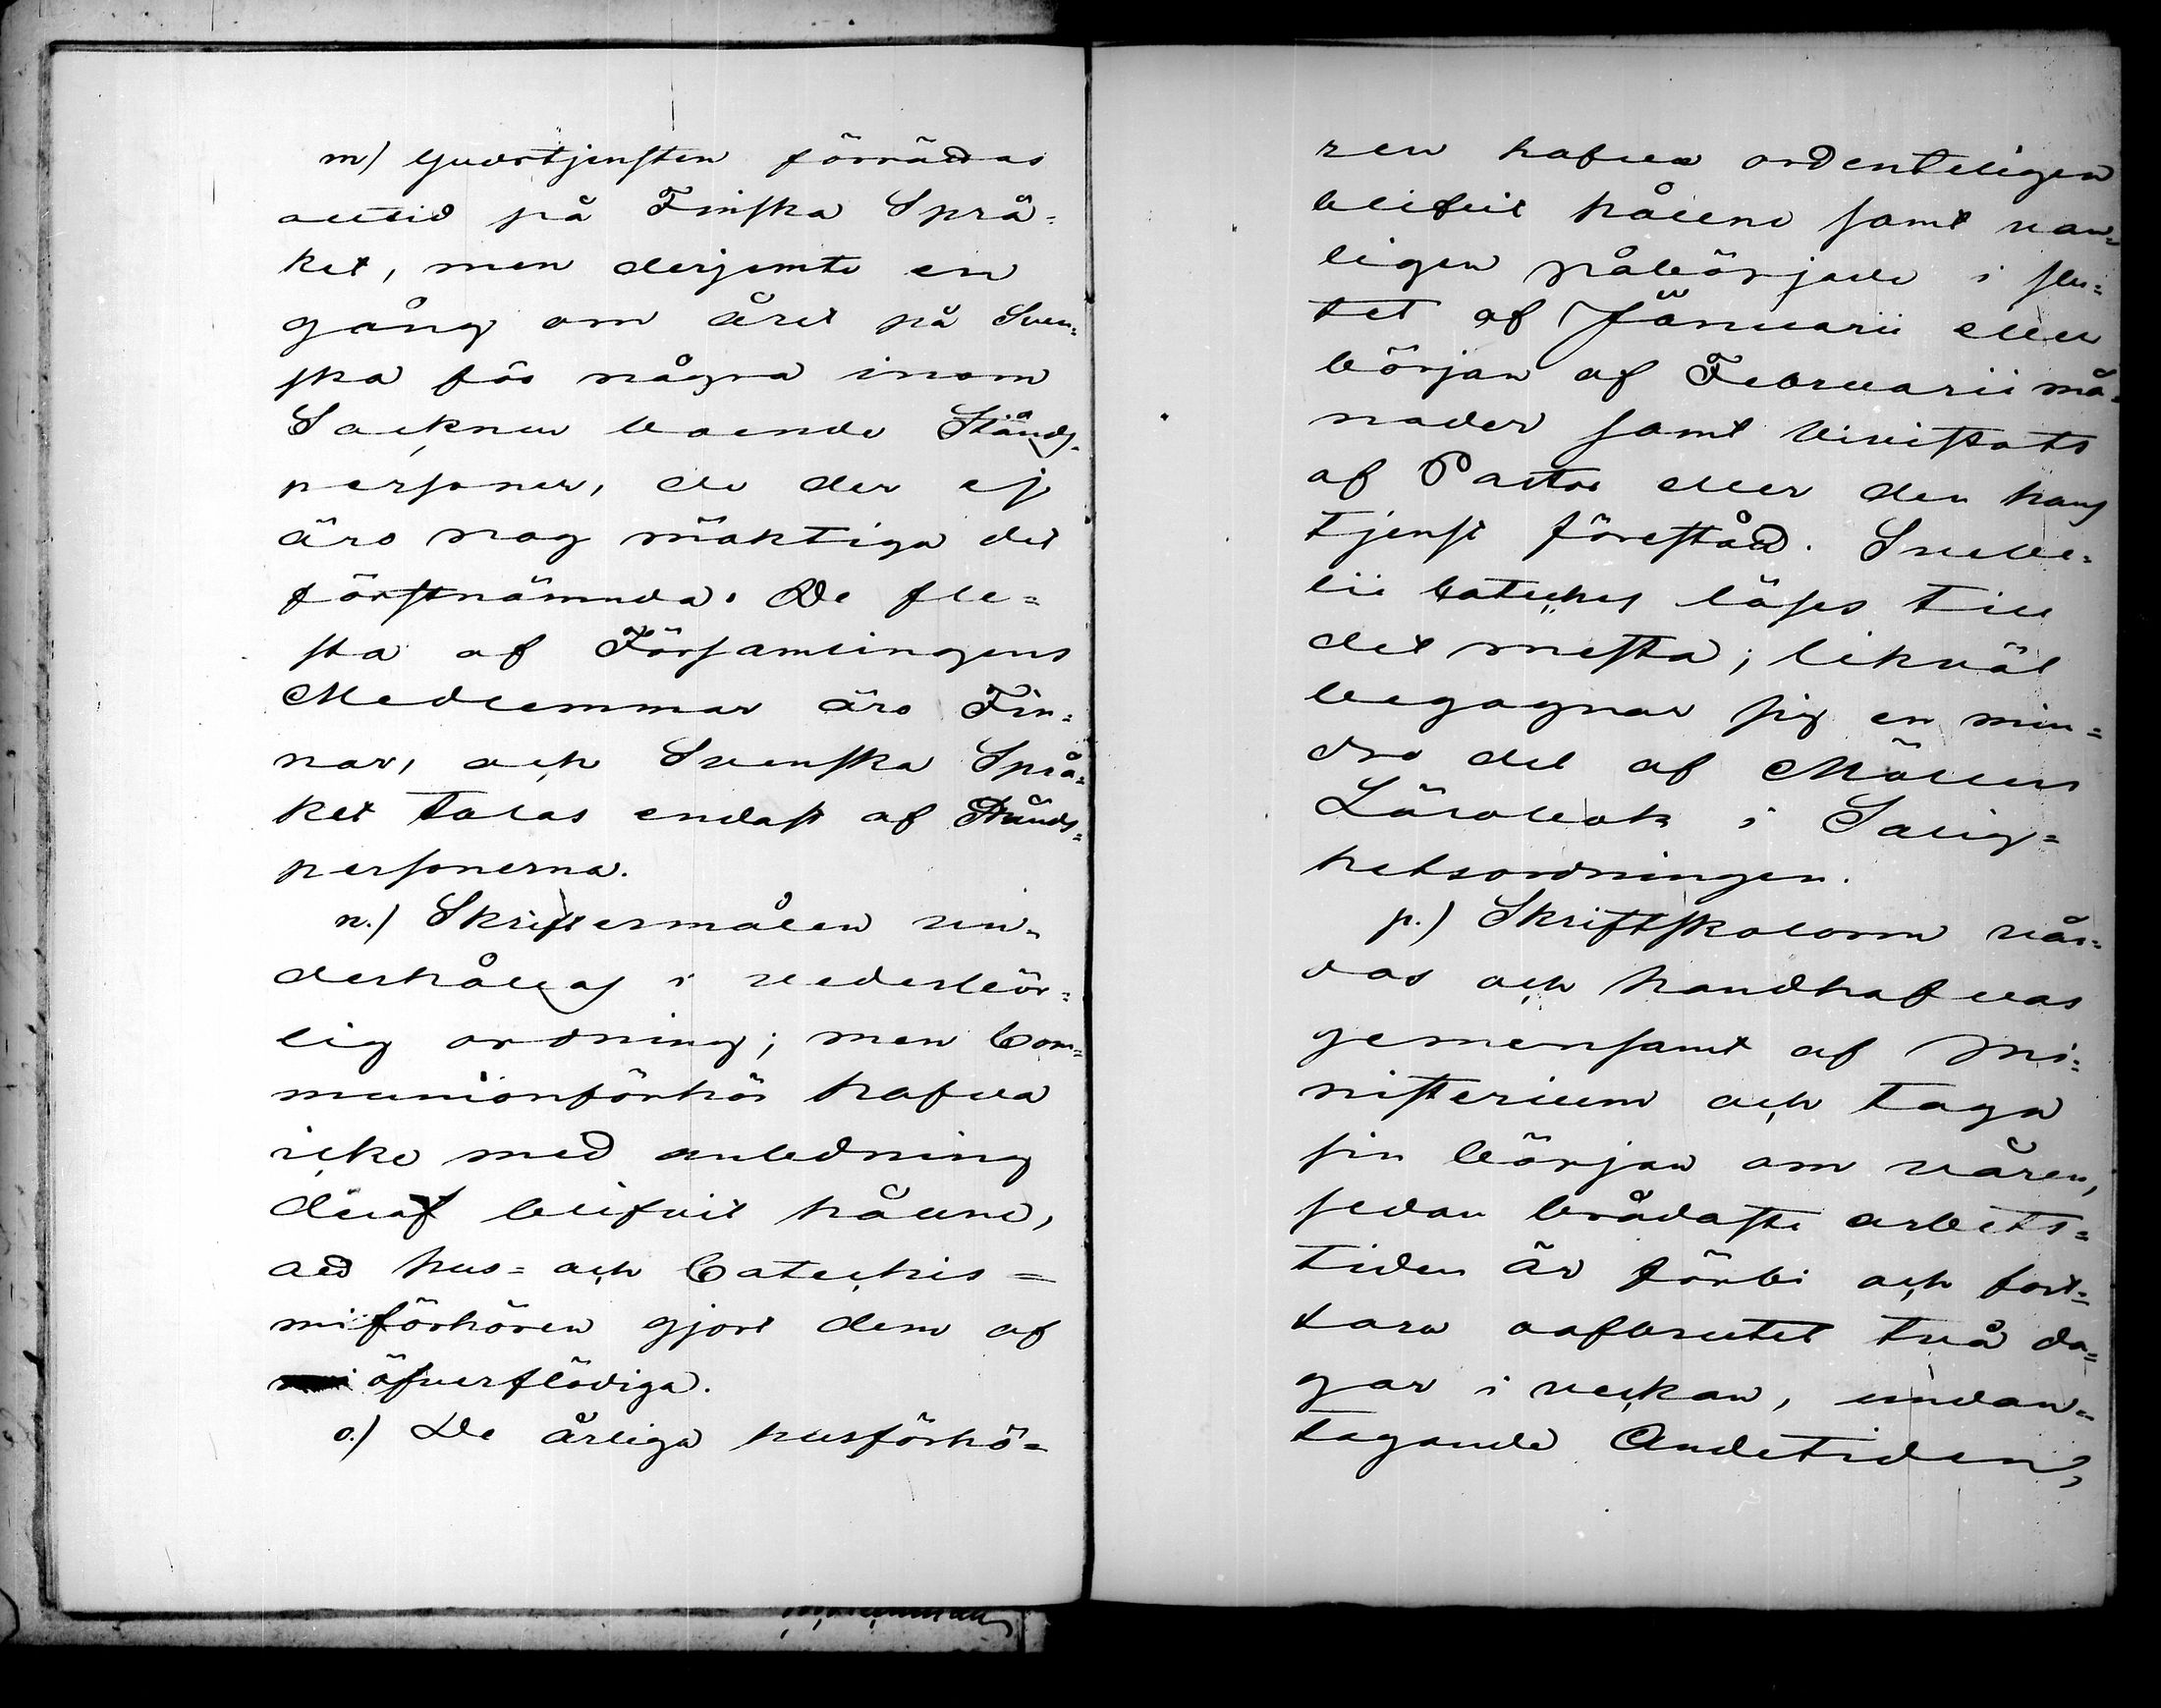 m) Gudstjensten förrättas
alltid på Finska Språ=
ket, men derjemte en
gång om året på Sven=
ska för några inom
Socknen boende Stånds=
personer, de der ej
äro nog mäktiga det
förstnämnda. De fle=
sta af Församlingens
Medlemmar äro Fin=
nar, och Svenska Språ=
ket talas endast af Stånds=
personerna.
n.) Skriftermålen un=
derhållas i vederbör=
lig ordning; men Com=
munionförhör hafva
icke med anledning
deraf blifvit hållne,
ad hus= och Catechis=
miförhören gjort dem af
öfverflödiga.
o.) De årliga husförhö=
ren hafva ordenteligen
blifvit hållne samt van=
ligen påbörjade i slu=
tet af Januarii eller
början af Februarii må=
nader samt bivistats
af Pastor eller den hans
tjenst förestått. Svebe=
lii Cateches läses till
det mesta; likväl
begagnar sig en min=
dre del af Möllers
Lärobok i Salig=
hetsordningen.
p.) Skriftskolorna vår=
das och handhafvas
gemensamt af Mi=
nisterium och taga
sin början om våren,
sedan brådaste arbets=
tiden är förbi och fort=
fara oafbrutet två da=
gar i veckan, undan=
tagande Andetiden,